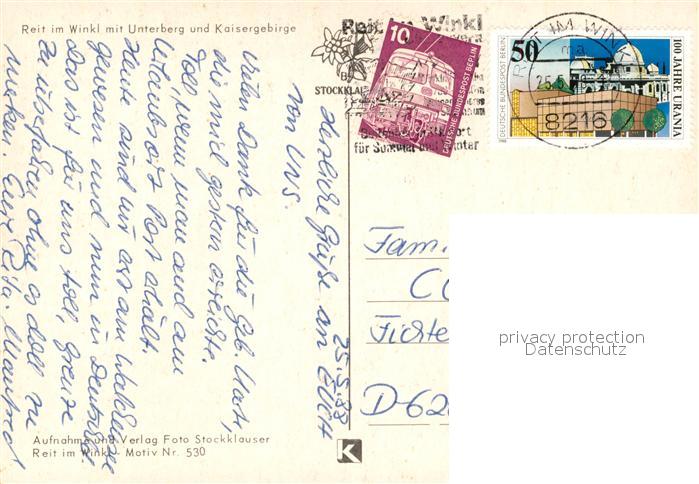 Reit im Winkl mit Unterberg und Kaisergebirge
Reit im Winkl
STOCKKLAU
für Sommer und Winter
10
DEUTSCHE BUNDESPOST BERLIN
50
DEUTSCHE BUNDESPOST BERLIN
100 JAHRE URANIA
REIT IM WINKL
8216
25.5.88
Herzliche Grüße an EUCH
von UNS.
Vielen Dank für die Geb. Karte,
die mich gestern erreichte.
Toll wenn man auch am
Urlaubsort Post erhält.
Heute sind wir am
gewesen und nun in Deutschl.
Das ist für uns toll, Grenze
zu überfahren ohne es doll zu
merken. Eure Rita, Manfred
Fam.
Fichte
D-62
privacy protection
Datenschutz
Aufnahme und Verlag Foto Stockklauser
Reit im Winkl - Motiv Nr. 530
K